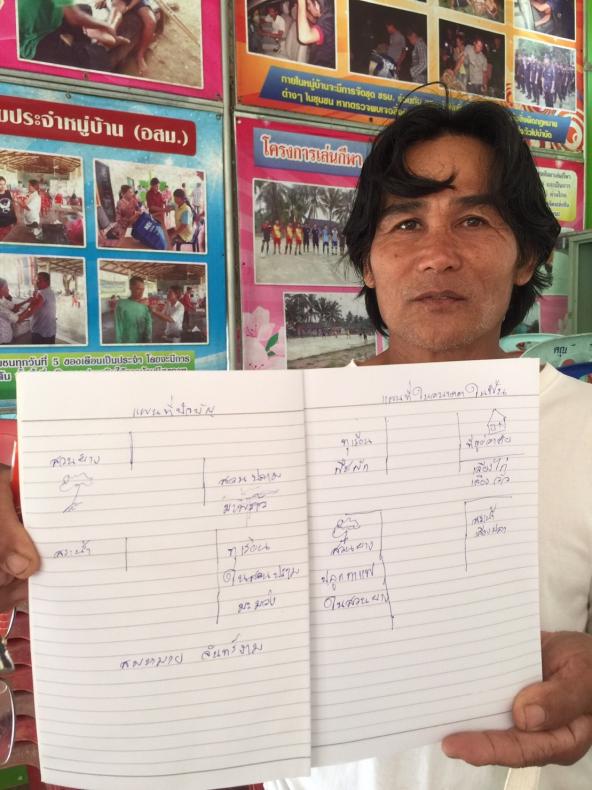 ภายในหมู่บ้านจะมีการจัดชุด ชรบ. ร่วมกับ
ต่างๆ ในชุมชน หากตรวจพบเจอสิ่ง
ผิดกฎหมาย
ประจำหมู่บ้าน (อสม.)
โครงการเล่นกีฬา
ทุกวันที่ 5 ของเดือนเป็นประจำ โดยจะมีการ
แผนที่ปัจจุบัน
สวนยาง
สวนปลาม
มะพร้าว
สระน้ำ
ทุเรียน
ในสวนปราม
มะม่วง
สมหมาย จันทร์งาม
แผนที่ในอนาคต
ทุเรียน
พืชผัก
ที่อยู่อาศัย
เลี้ยงไก่
เลี้ยงวัว
สวนยาง
ปลูกกาแฟ
ในสวนยาง
สระน้ำ
เลี้ยงปลา